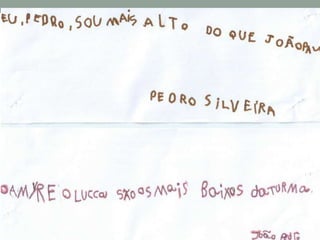 EU, PEDRO, SOU MAIS ALTO DO QUE JOÃO
PEDRO SILVEIRA
E O LUCCA SÃO OS MAIS BAIXOS DA TURMA.
JOÃO